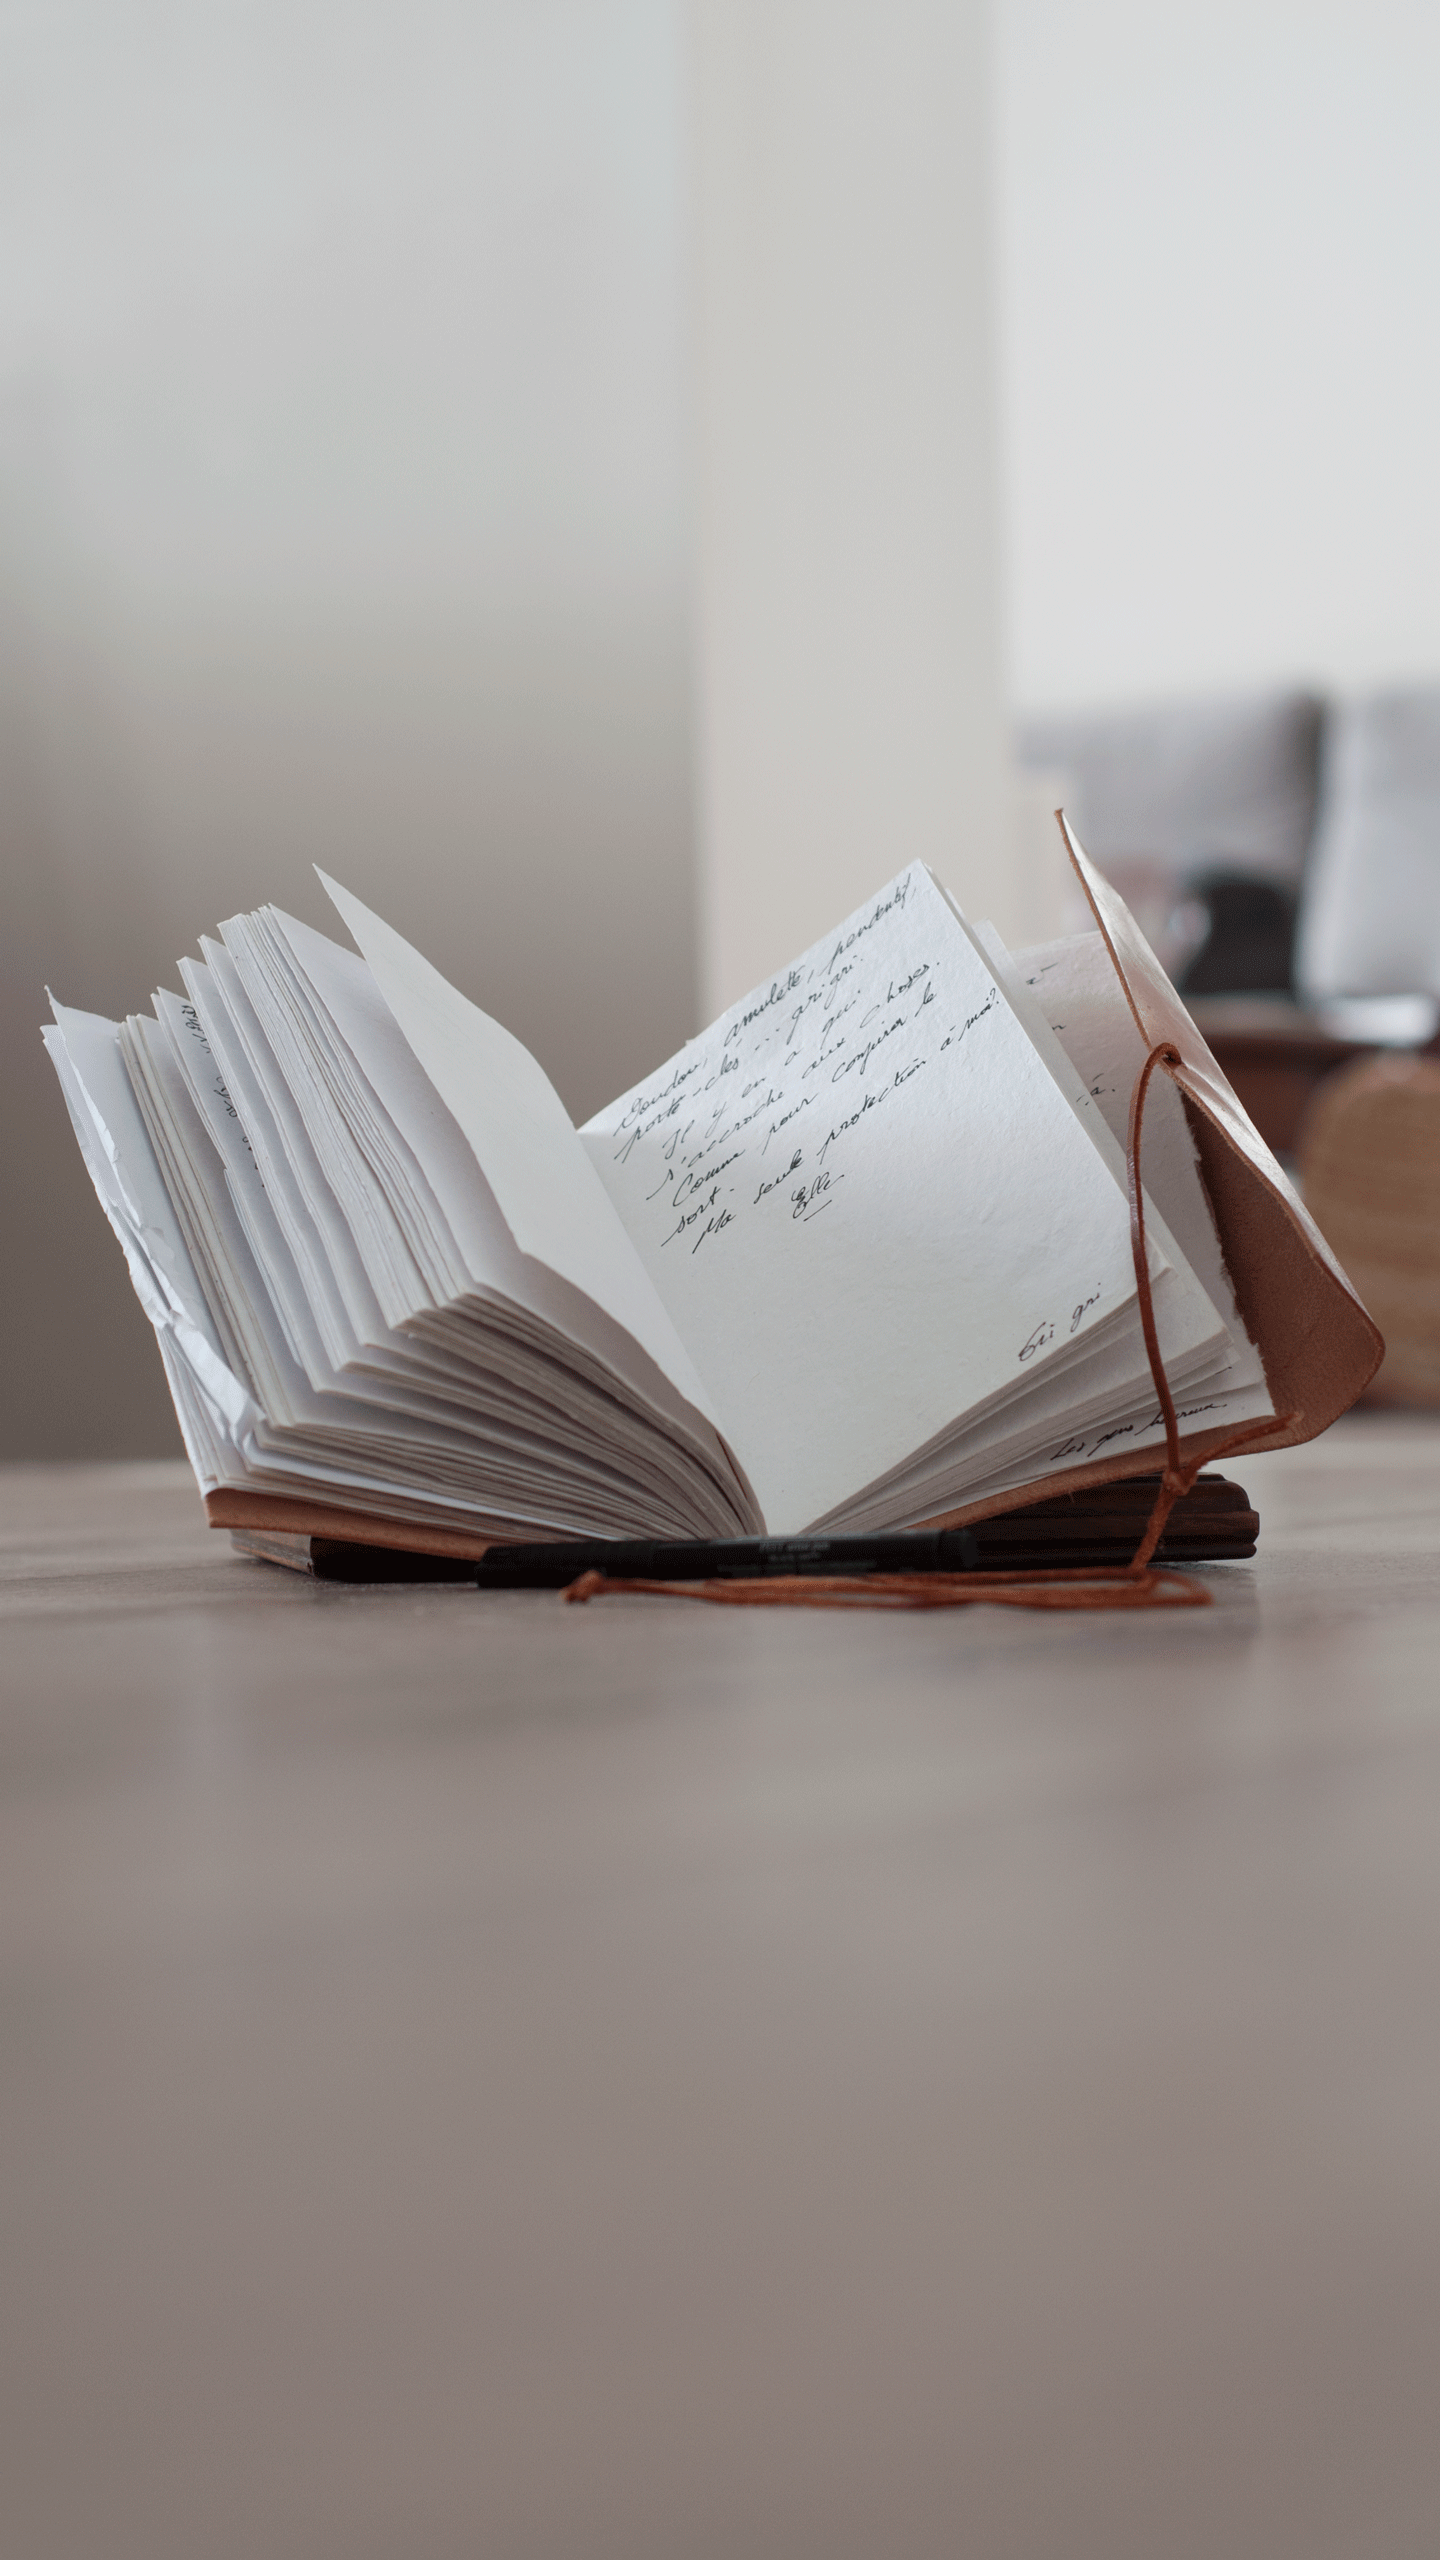 Doudou, amulette, pendentif,
porte-clés... grigri.
Il y en a qui
s'accroche aux choses.
Comme pour conjurer le
sort.
Ma seule protection à moi?
Elle
Gri gri
Les gens heureux